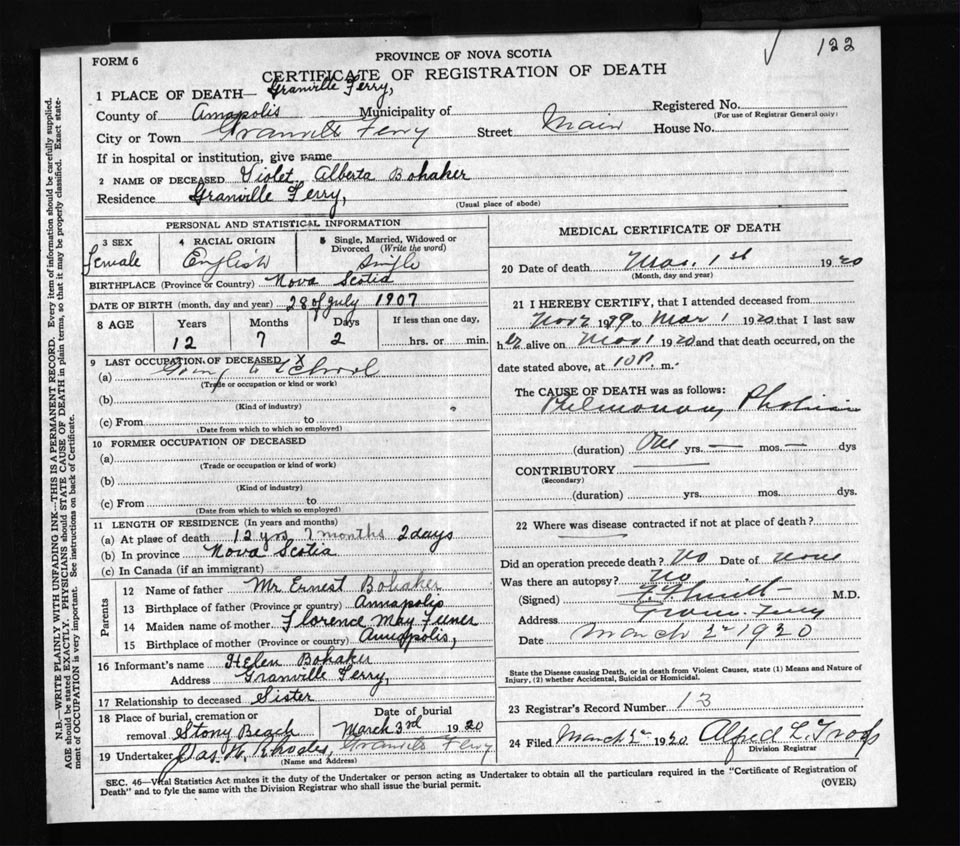 122
FORM 6
PROVINCE OF NOVA SCOTIA
CERTIFICATE OF REGISTRATION OF DEATH
1 PLACE OF DEATH— Granville Ferry,
County of Annapolis Municipality of
Registered No.
(For use of Registrar General only)
City or Town Granville Ferry Street Main House No.
If in hospital or institution, give name
2 NAME OF DECEASED Violet Alberta Bohaker
Residence Granville Ferry,
(Usual place of abode)
PERSONAL AND STATISTICAL INFORMATION
3 SEX
Female
4 RACIAL ORIGIN
English
5 Single, Married, Widowed or Divorced (Write the word)
Single
BIRTHPLACE (Province or Country) Nova Scotia
DATE OF BIRTH (month, day and year) 28 of July 1907
8 AGE
Years Months Days If less than one day,
12 7 2 hrs. or min.
9 LAST OCCUPATION OF DECEASED X
(a) Going to School
(Trade or occupation or kind of work)
(b)
(Kind of industry)
(c) From to
(Date from which to which so employed)
10 FORMER OCCUPATION OF DECEASED
(a)
(Trade or occupation or kind of work)
(b)
(Kind of industry)
(c) From to
(Date from which to which so employed)
11 LENGTH OF RESIDENCE (In years and months)
(a) At place of death 12 yrs 7 months 2 days
(b) In province Nova Scotia
(c) In Canada (if an immigrant)
Parents
12 Name of father Mr Ernest Bohaker
13 Birthplace of father (Province or country) Annapolis
14 Maiden name of mother Florence May
15 Birthplace of mother (Province or country) Annapolis,
16 Informant's name Helen Bohaker
Address Granville Ferry,
17 Relationship to deceased Sister
18 Place of burial, cremation or removal Stony Beach
Date of burial
March 3rd 1920
19 Undertaker Jas. W. Rhodes, Granville Ferry
(Name and Address)
MEDICAL CERTIFICATE OF DEATH
20 Date of death Mar. 1st 1920
(Month, day and year)
21 I HEREBY CERTIFY, that I attended deceased from
Nov 2 1919 to Mar 1 1920 that I last saw
her alive on Mar 1 1920 and that death occurred, on the
date stated above, at 10 P. m.
The CAUSE OF DEATH was as follows:
Pulmonary Phthisis
(duration) One yrs. — mos. — dys
CONTRIBUTORY
(Secondary)
(duration) yrs. mos. dys.
22 Where was disease contracted if not at place of death?
Did an operation precede death? No Date of none
Was there an autopsy? No
(Signed) M.D.
Address Gran. Ferry
Date March 2nd 1920
State the Disease causing Death, or in death from Violent Causes, state (1) Means and Nature of
Injury, (2) whether Accidental, Suicidal or Homicidal.
23 Registrar's Record Number 13
24 Filed March 2nd 1920 Alfred L. Troop
Division Registrar
SEC. 46—Vital Statistics Act makes it the duty of the Undertaker or person acting as Undertaker to obtain all the particulars required in the "Certificate of Registration of
Death" and to fyle the same with the Division Registrar who shall issue the burial permit.
(OVER)
N.B.—WRITE PLAINLY WITH UNFADING INK—THIS IS A PERMANENT RECORD. Every item of information should be carefully supplied.
AGE should be stated EXACTLY. PHYSICIANS should STATE CAUSE OF DEATH in plain terms, so that it may be properly classified. Exact state-
ment of OCCUPATION is very important. See instructions on back of Certificate.